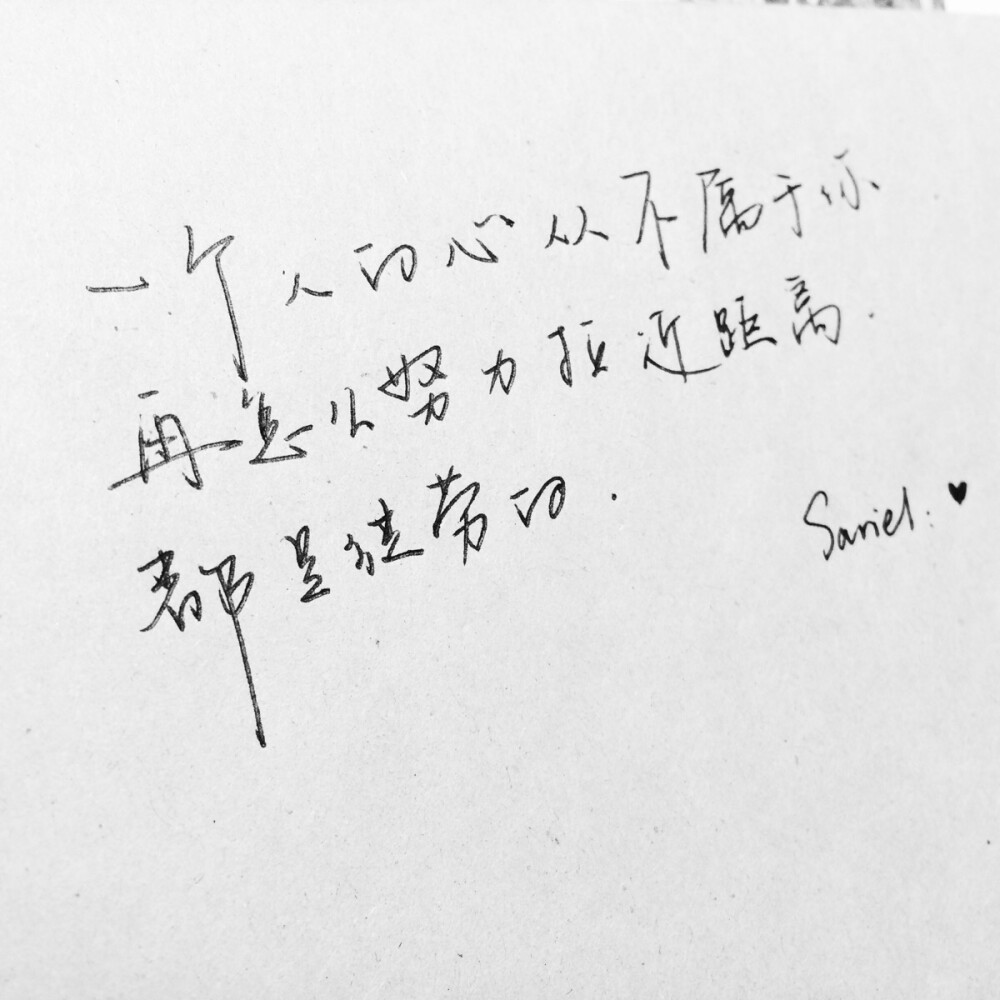 一个人的心从不属于你
再怎么努力拉近距离.
都是徒劳的.
Sariel: ♥